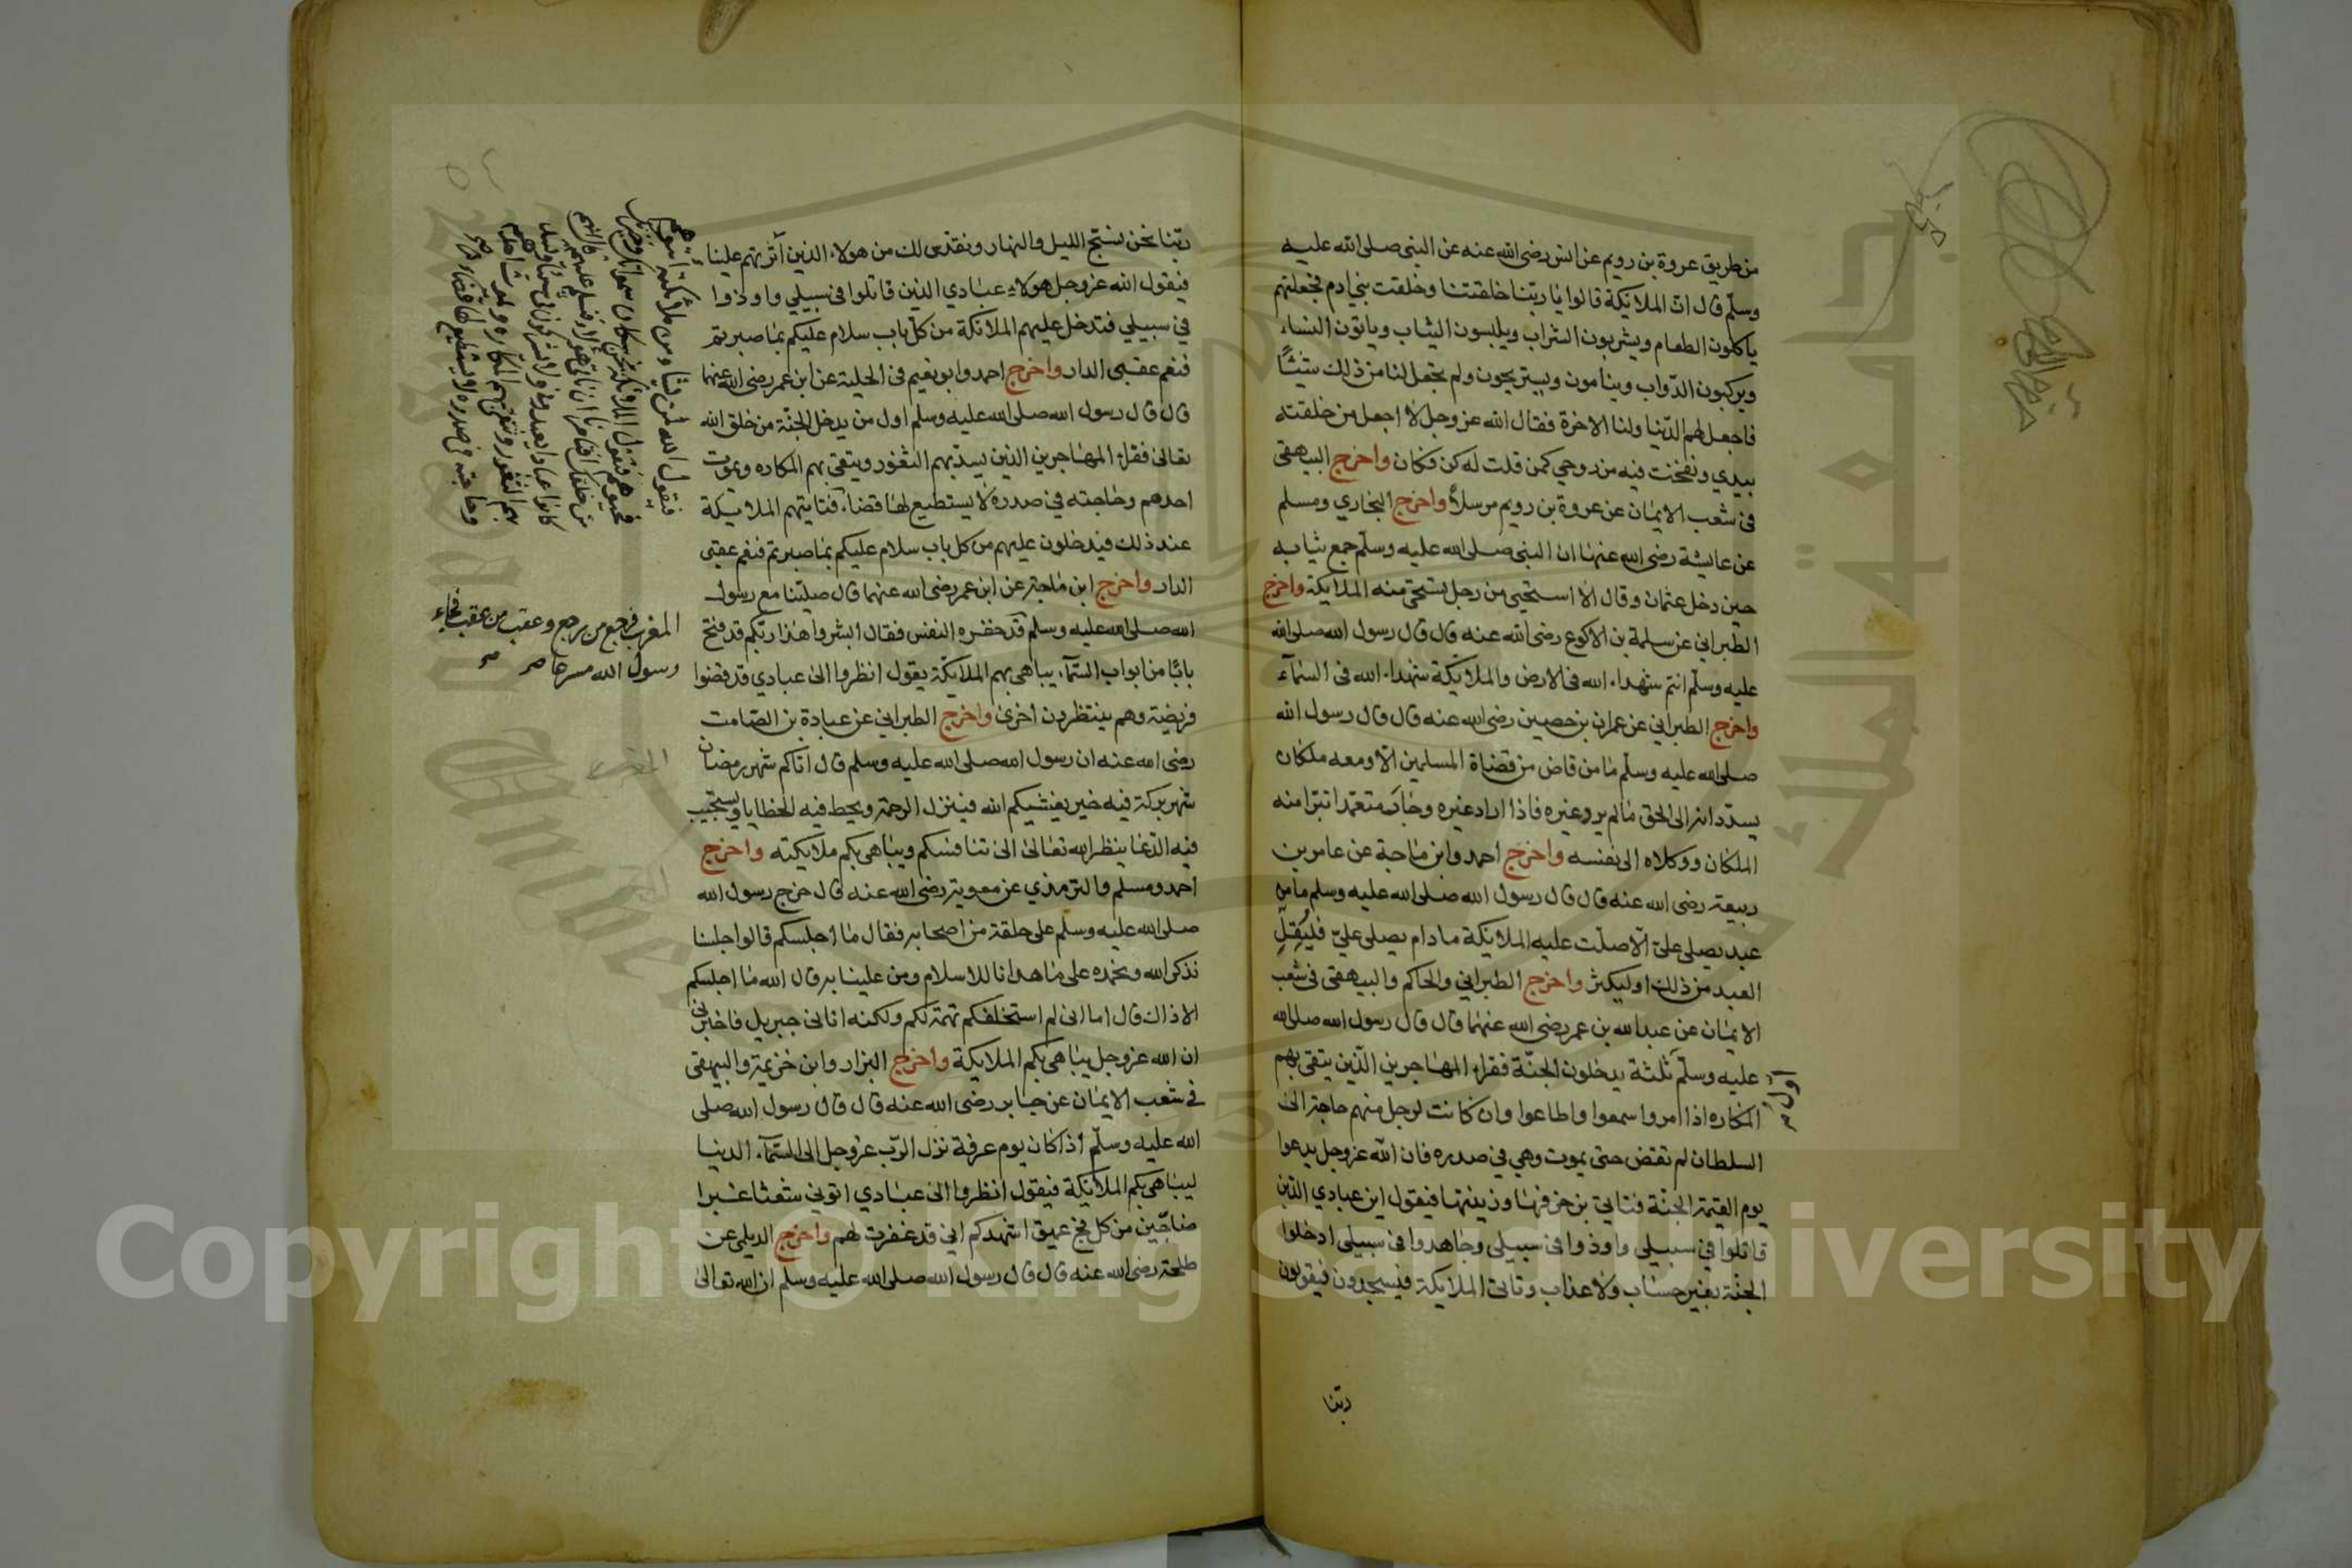 من طريق عروة بن رويم عن انس رضى الله عنه عن النبى صلى الله عليه
وسلّم قال انّ الملائكة قالوا يا ربّنا خلقتنا وخلقت بني ادم فجعلتهم
ياكلون الطعام ويشربون الشراب ويلبسون الثياب وياتون النساء
ويركبون الدّواب وينامون ويستريحون ولم تجعل لنا من ذلك شيئًا
فاجعل لهم الدّنيا ولنا الاخرة فقال الله عز وجل لا اجعل من خلقته
بيدي ونفخت فيه من روحي كمن قلت له كن فكان واخرج البيهقى
فى شعب الايمان عن عروة بن رويم مرسلاً واخرج البخاري ومسلم
عن عايشة رضى الله عنها ان النبى صلى الله عليه وسلّم جمع ثيابه
حين دخل عثمان وقال الا استحيى من رجل تستحى منه الملايكة واخرج
الطبراني عن سلمة بن الاكوع رضى الله عنه قال قال رسول الله صلى الله
عليه وسلّم انتم شهداء الله فى الارض والملايكة شهداء الله فى السّماء
واخرج الطبراني عن عمران بن حصيين رضى الله عنه قال قال رسول الله
صلى الله عليه وسلّم ما من قاض من قضاة المسلمين الّا ومعه ملكان
يسدّدانه الى الحق ما لم يرد غيره فاذا اراد غيره وجار متعمّدا تبرّا منه
الملكان ووكلاه الى نفسه واخرج احمد وابن ماجة عن عامر بن
ربيعة رضى الله عنه قال قال رسول الله صلى الله عليه وسلم ما من
عبد يصلى عليّ الّا صلّت عليه الملائكة ما دام يصلى عليّ فليُقِلّ
العبد من ذلك او ليكثر واخرج الطبراني والحاكم والبيهقى فى شعب
الايمان عن عبدالله بن عمر رضى الله عنهما قال قال رسول الله صلى الله
عليه وسلّم ثلثة يدخلون الجنّة فقراء المهاجرين الّذين يتقى بهم
المكاره اذا امروا سمعوا واطاعوا وان كانت لرجل منهم حاجة الى
السلطان لم تقض حتى يموت وهي في صدره فان الله عزوجل يدعوا
يوم القيمة الجنّة فتاتي بزخرفها وزينتها فيقول اين عبادي الذين
قاتلوا في سبيلى واوذوا فى سبيلى وجاهدوا فى سبيلى ادخلوا
الجنّة بغير حساب ولا عذاب وتاتى الملايكة فيسجدون فيقولون
اول
ربّنا
ربّنا نحن نسبّح الليل والنهار ونقدس لك من هولاء الذين آثرتهم علينا
فيقول الله عزوجل هولاء عبادي الذين قاتلوا فى سبيلي واوذوا
في سبيلي فتدخل عليهم الملائكة من كلّ باب سلام عليكم بما صبرتم
فنعم عقبى الدار واخرج احمد وابو نعيم فى الحلية عن ابن عمر رضى الله عنهما
قال قال رسول الله صلى الله عليه وسلم اول من يدخل الجنّة من خلق الله
تعالى فقراء المهاجرين الذين يسدّ بهم الثغور ويتقى بهم المكاره ويموت
احدهم وحاجته في صدره لا يستطيع لها قضاء فتايتهم الملائيكة
عند ذلك فيدخلون عليهم من كل باب سلام عليكم بما صبرتم فنعم عقبى
الدار واخرج ابن ماجة عن ابن عمر رضى الله عنهما قال صلينا مع رسول
الله صلى الله عليه وسلم قد حفزه النفس فقال ابشروا هذا ربّكم قد فتح
بابًا من ابواب السّماء يباهى بهم الملائكة يقول انظروا الى عبادي قد قضوا
فريضة وهم ينتظرون اخرى واخرج الطبراني عن عبادة بن الصّامت
رضى الله عنه ان رسول الله صلى الله عليه وسلم قال اتاكم شهر رمضان
شهر بركة فيه خير يغشيكم الله فينزل الرحمة ويحط فيه الخطايا ويستجيب
فيه الدّعا ينظر الله تعالى الى تنافسكم ويباهى بكم ملايكته واخرج
احمد ومسلم والترمذي عن معوية رضى الله عنه قال خرج رسول الله
صلى الله عليه وسلم على حلقة من اصحابه فقال ما اجلسكم قالوا جلسنا
نذكر الله ونحمده على ما هدانا للاسلام ومن علينا به قال الله ما اجلسكم
الا ذاك قال اما انى لم استحلفكم تهمة لكم ولكنه اتانى جبريل فاخبرنى
ان الله عزوجل يباهى بكم الملايكة واخرج البزار وابن خزيمة والبيهقى
في شعب الايمان عن جابر رضى الله عنه قال قال رسول الله صلى
الله عليه وسلّم اذا كان يوم عرفة نزل الرّب عزوجل الى السّماء الدنيا
ليباهى بكم الملائكة فيقول انظروا الى عبادي اتوني شعثا غبرا
ضاجّين من كل فج عميق اشهدكم اني قد غفرت لهم واخرج الديلمى عن
طلحة رضى الله عنه قال قال رسول الله صلى الله عليه وسلم ان الله تعالى
فيقول الله لمن يشا من ملائكته ايتوهم
فحيوهم فتقول الملائكة نحن سكان سمائك وخيرتك
من خلقك افتامرنا ان ناتى هولاء فنسلم عليهم قال انهم
كانوا عبادا يعبدونى ولا يشركون بى شيئا وتسد
بهم الثغور وتتقى بهم المكاره ويموت احدهم
وحاجته فى صدره لا يستطيع لها قضاء
المغرب فرجع من رجع وعقب من عقب فجاء
رسول الله مسرعا صح
Copyright © King Saud University